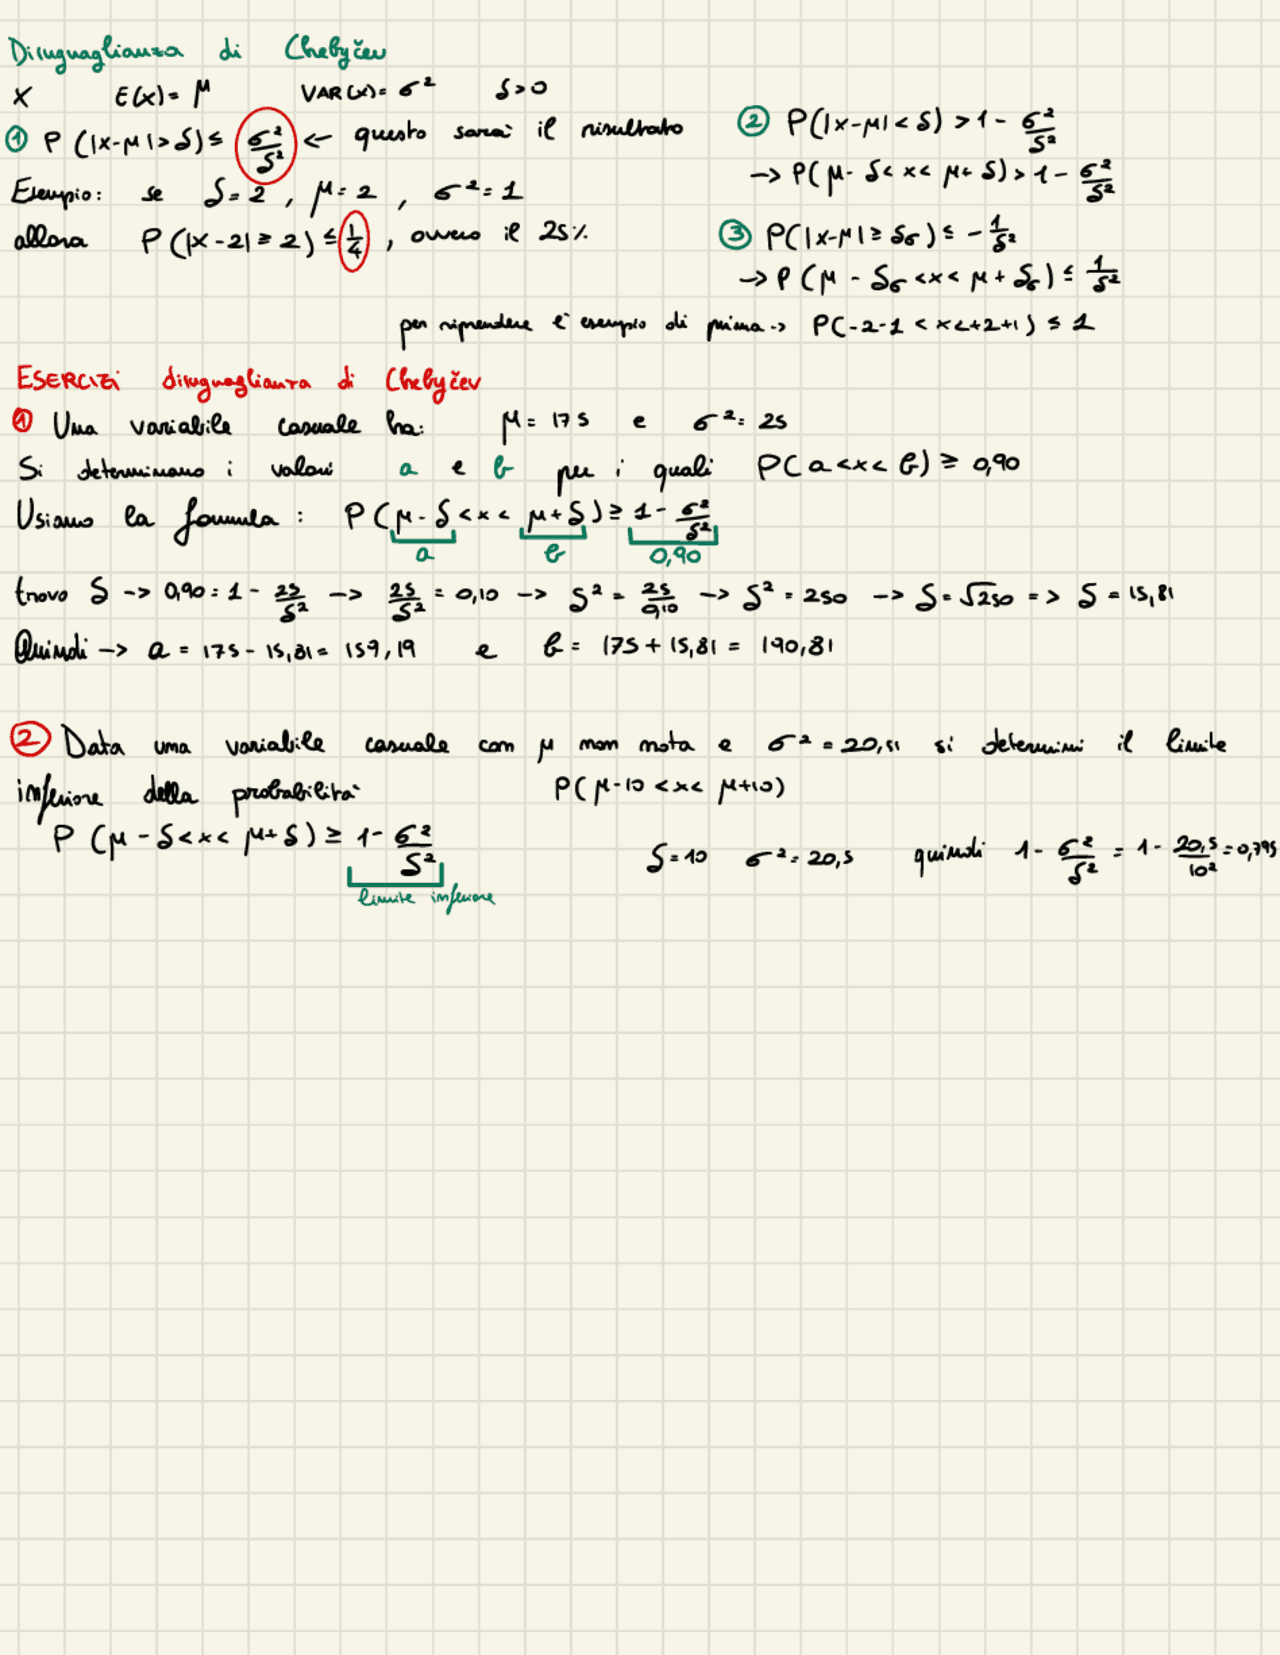 Disuguaglianza di Chebyčev
X E(x)= μ VAR(x)= σ² δ>0
① P (|x-μ|>δ)≤ σ²/δ² ← questo sarà il risultato
Esempio: se δ=2 , μ=2 , σ²=1
allora P(|x-2|≥2) ≤ 1/4 , ovvero il 25%
② P(|x-μ|<δ) >1- σ²/δ²
-> P(μ-δ<x<μ+δ)>1- σ²/δ²
③ P(|x-μ|≥δσ)≤ -1/δ²
-> P(μ-δσ<x<μ+δσ) ≤ 1/δ²
per riprendere l'esempio di prima -> P(-2-1<x<+2+1) ≤ 1
ESERCIZI disuguaglianza di Chebyčev
① Una variabile casuale ha: μ= 175 e σ²= 25
Si determinano i valori a e b per i quali P(a<x<b) ≥ 0,90
Usiamo la formula: P(μ-δ<x<μ+δ)≥ 1- σ²/δ²
a b 0,90
trovo δ -> 0,90=1- 25/δ² -> 25/δ² = 0,10 -> δ² = 25/0,10 -> δ² = 250 -> δ=√250 => δ = 15,81
Quindi -> a = 175-15,81= 159,19 e b= 175+15,81 = 190,81
② Data una variabile casuale con μ non nota e σ² = 20,51 si determini il limite
inferiore della probabilità P(μ-10<x<μ+10)
P (μ-δ<x<μ+δ) ≥ 1- σ²/δ² δ=10 σ²=20,5 quindi 1- σ²/δ² = 1- 20,5/10² =0,795
limite inferiore